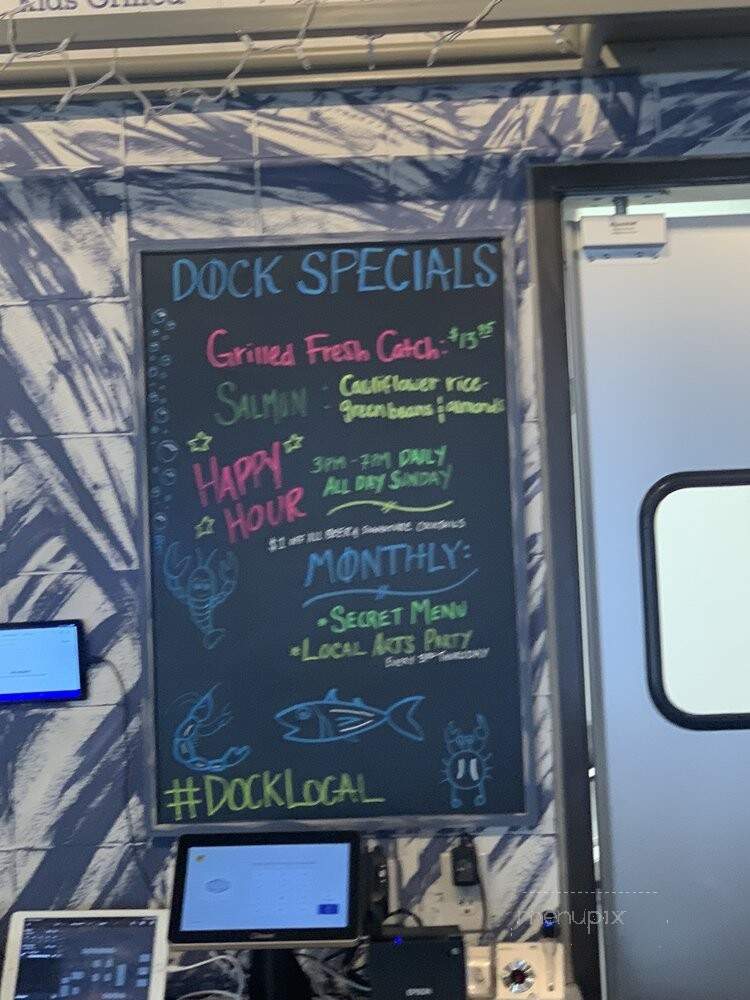 Kids Grilled
DOCK SPECIALS
Grilled Fresh Catch: $13.95
SALMON - Cauliflower rice-
- green beans & almonds
HAPPY HOUR
3PM-7PM DAILY
ALL DAY SUNDAY
$1 OFF ALL BEER & SIGNATURE COCKTAILS
MONTHLY:
•SECRET MENU
•LOCAL ARTS PARTY
EVERY 3RD THURSDAY
#DOCKLOCAL
EPSON
menupix